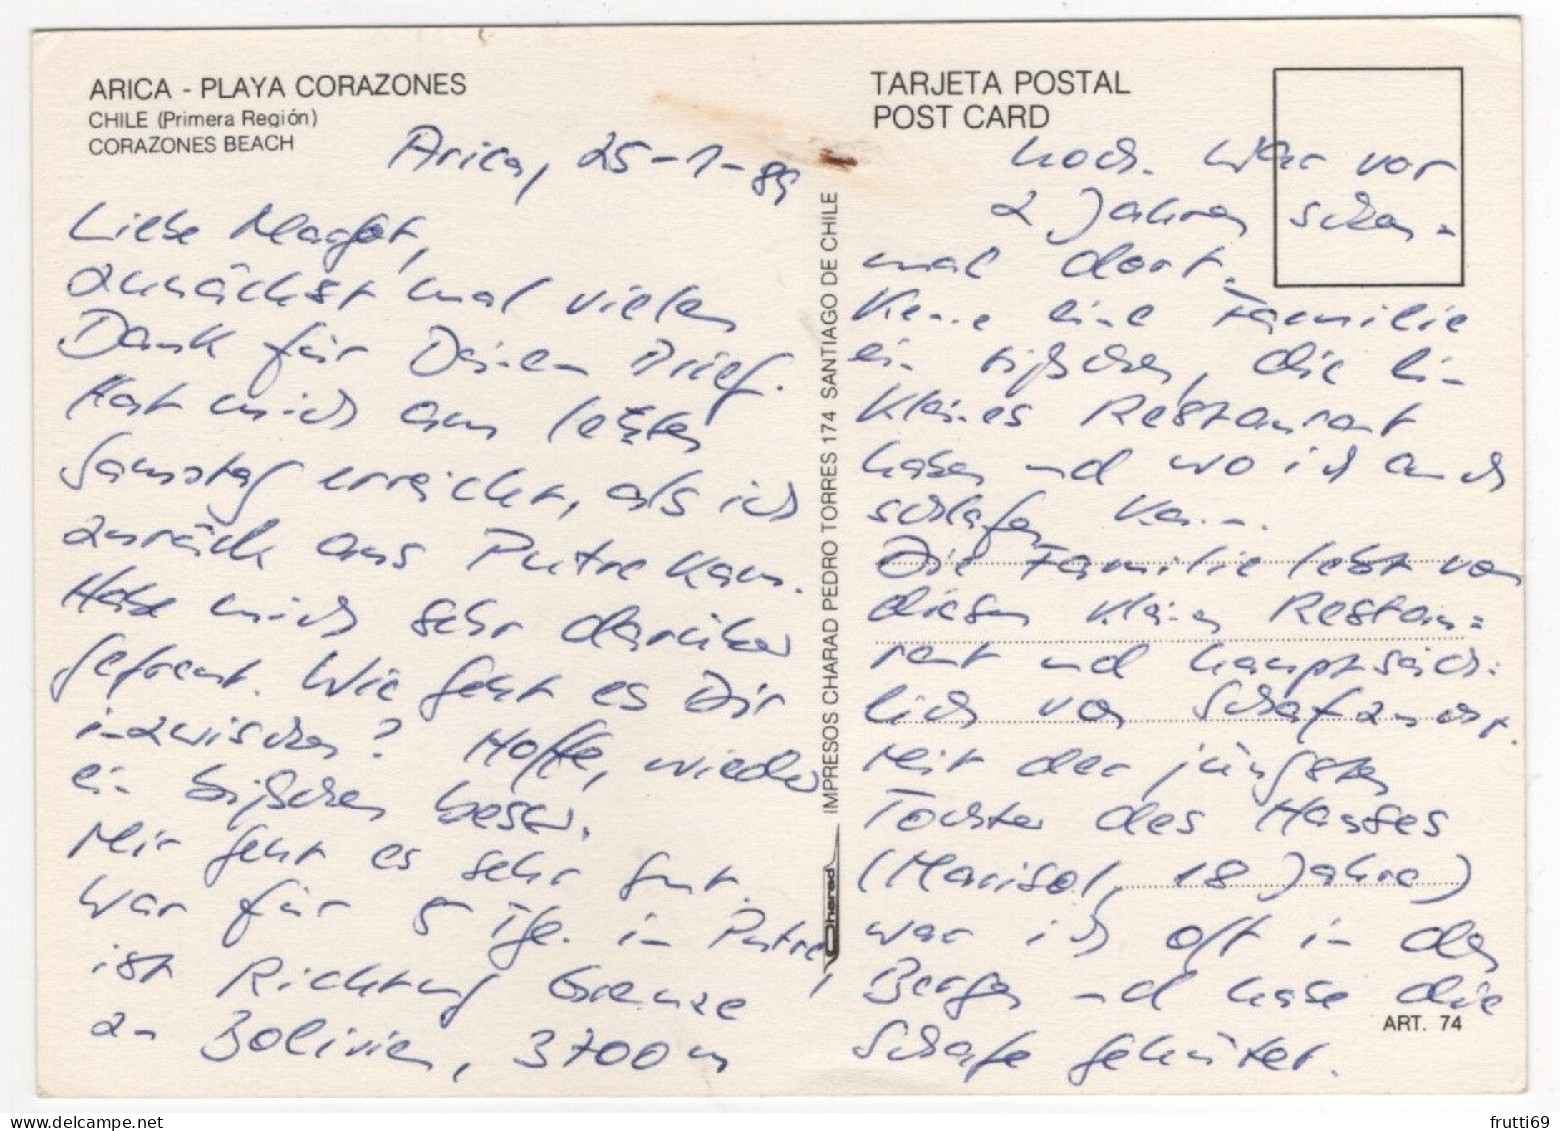 ARICA - PLAYA CORAZONES
CHILE (Primera Región)
CORAZONES BEACH
Arica, 25-1-89
Liebe Magot,
zunächst mal vielen
Dank für Deinen Brief.
Hat mich am letzten
Samstag erreicht, als ich
zurück aus Putre kam.
Habe mich sehr darüber
gefreut. Wie geht es Dir
inzwischen? Hoffe, wieder
ein bißchen besser.
Mir geht es sehr gut.
War für 5 Tge. in Putre,
ist Richtung Grenze
zu Bolivien, 3700 m
IMPRESOS CHARAD PEDRO TORRES 174 SANTIAGO DE CHILE
Charad
TARJETA POSTAL
POST CARD
hoch. War vor
2 Jahren schon-
mal dort.
Kenne eine Familie
ein bißchen, die ein
kleines Restaurant
haben und wo ich auch
schlafen kann.
Die Familie lebt von
diesem kleinen Restau=
rant und hauptsäch=
lich von Schafzucht.
Mit der jüngsten
Tochter des Hauses
(Marisol, 18 Jahre)
war ich oft in den
Bergen und habe die
Schafe gehütet.
ART. 74
frutti69